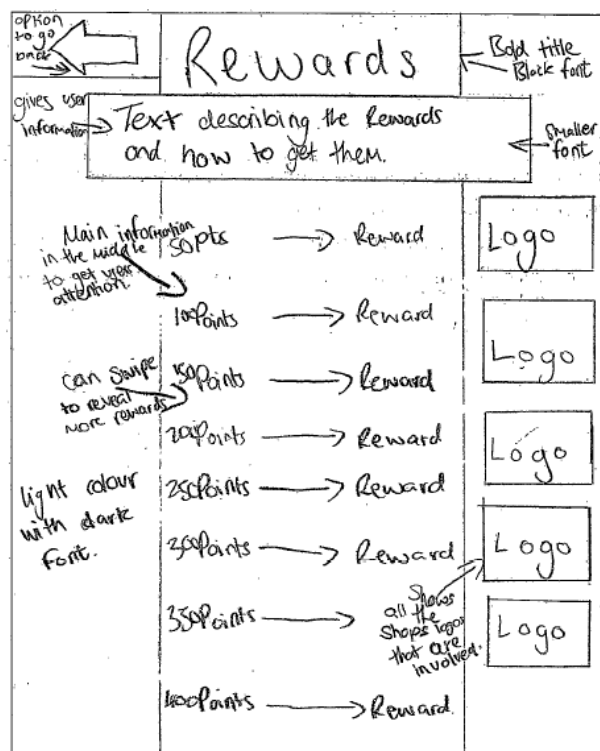 option
to go
back
Rewards
Bold title
Black font
gives user
information
Text describing the Rewards
and how to get them.
smaller
font
Main information
in the middle
to get users
attention.
50pts
Reward
Logo
100Points
Reward
Logo
can swipe
to reveal
more rewards
150Points
Reward
200Points
Reward
Logo
light colour
with dark
font.
250Points
Reward
300Points
Reward
Logo
Shows
all the
shops logos
that are
involved.
350Points
Logo
400Points
Reward.